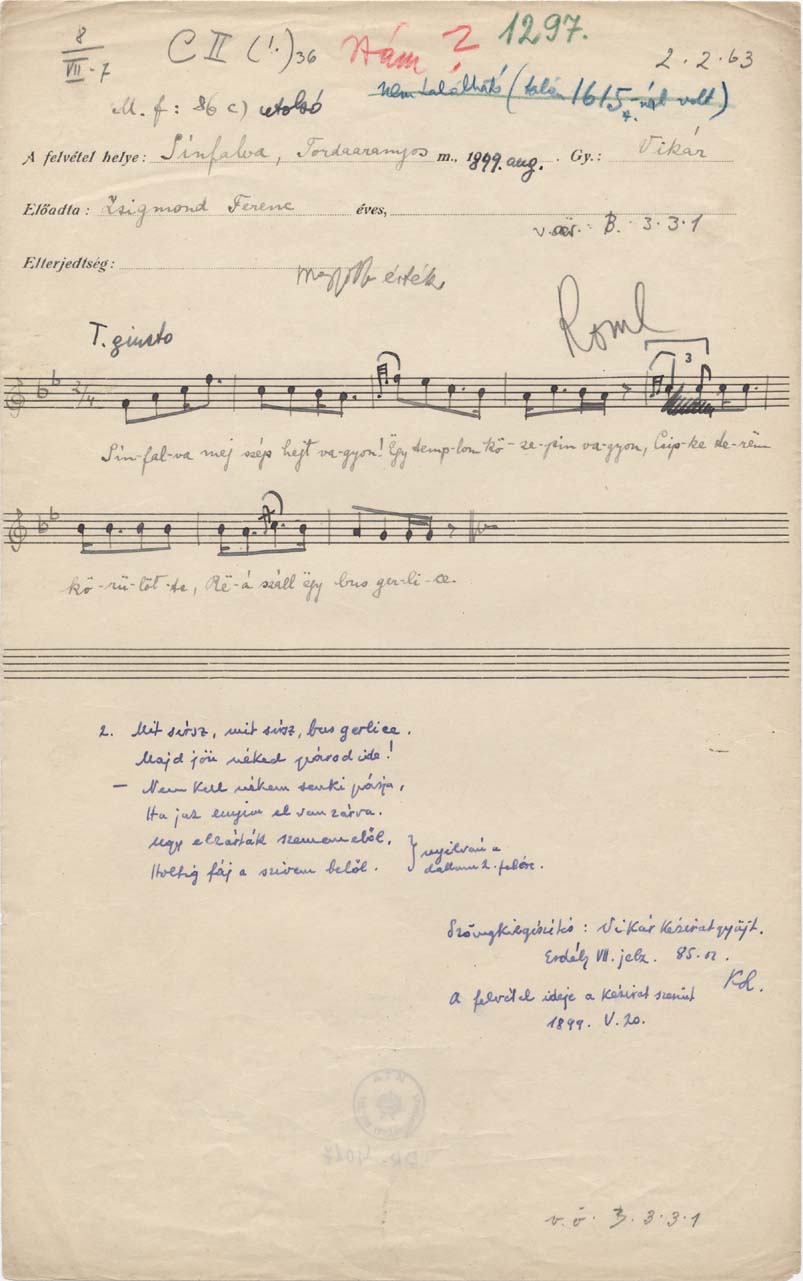 8
VII-7
C II (!.) 36
Hám 2 1297.
2.2.63
nem található (talán 1615-nél volt)
M. f: 86 c) utolsó
A felvétel helye: Sinfalva, Tordaaranyos m., 1899. aug. Gy.: Vikár
Előadta: Zsigmond Ferenc éves,
B. 3.3.1
Elterjedtség:
érték
T. giusto
2/4
3
Sin-fal-va mej szép hejt va-gyon! Ëgy temp-lom kö-ze-pin va-gyon, Csip-ke te-rëm
kö-rü-löt-te, Rë-á száll ëgy bus ger-li-ce.
2. Mit sirsz, mit sirsz, bus gerlice.
Majd jön néked párod ide!
– Nem kell nékem senki párja,
Ha jaz enyim el van zárva.
Ugy elzárták szemem elől,
Holtig fáj a szivem belől.
} nyilván a
dallam 2. felére.
Szövegkiegészítés: Vikár kéziratgyűjt.
Erdély VII. jelz. 85. sz.
A felvétel ideje a kézirat szerint
1899. V. 20.
v.ö. 3.3.3.1